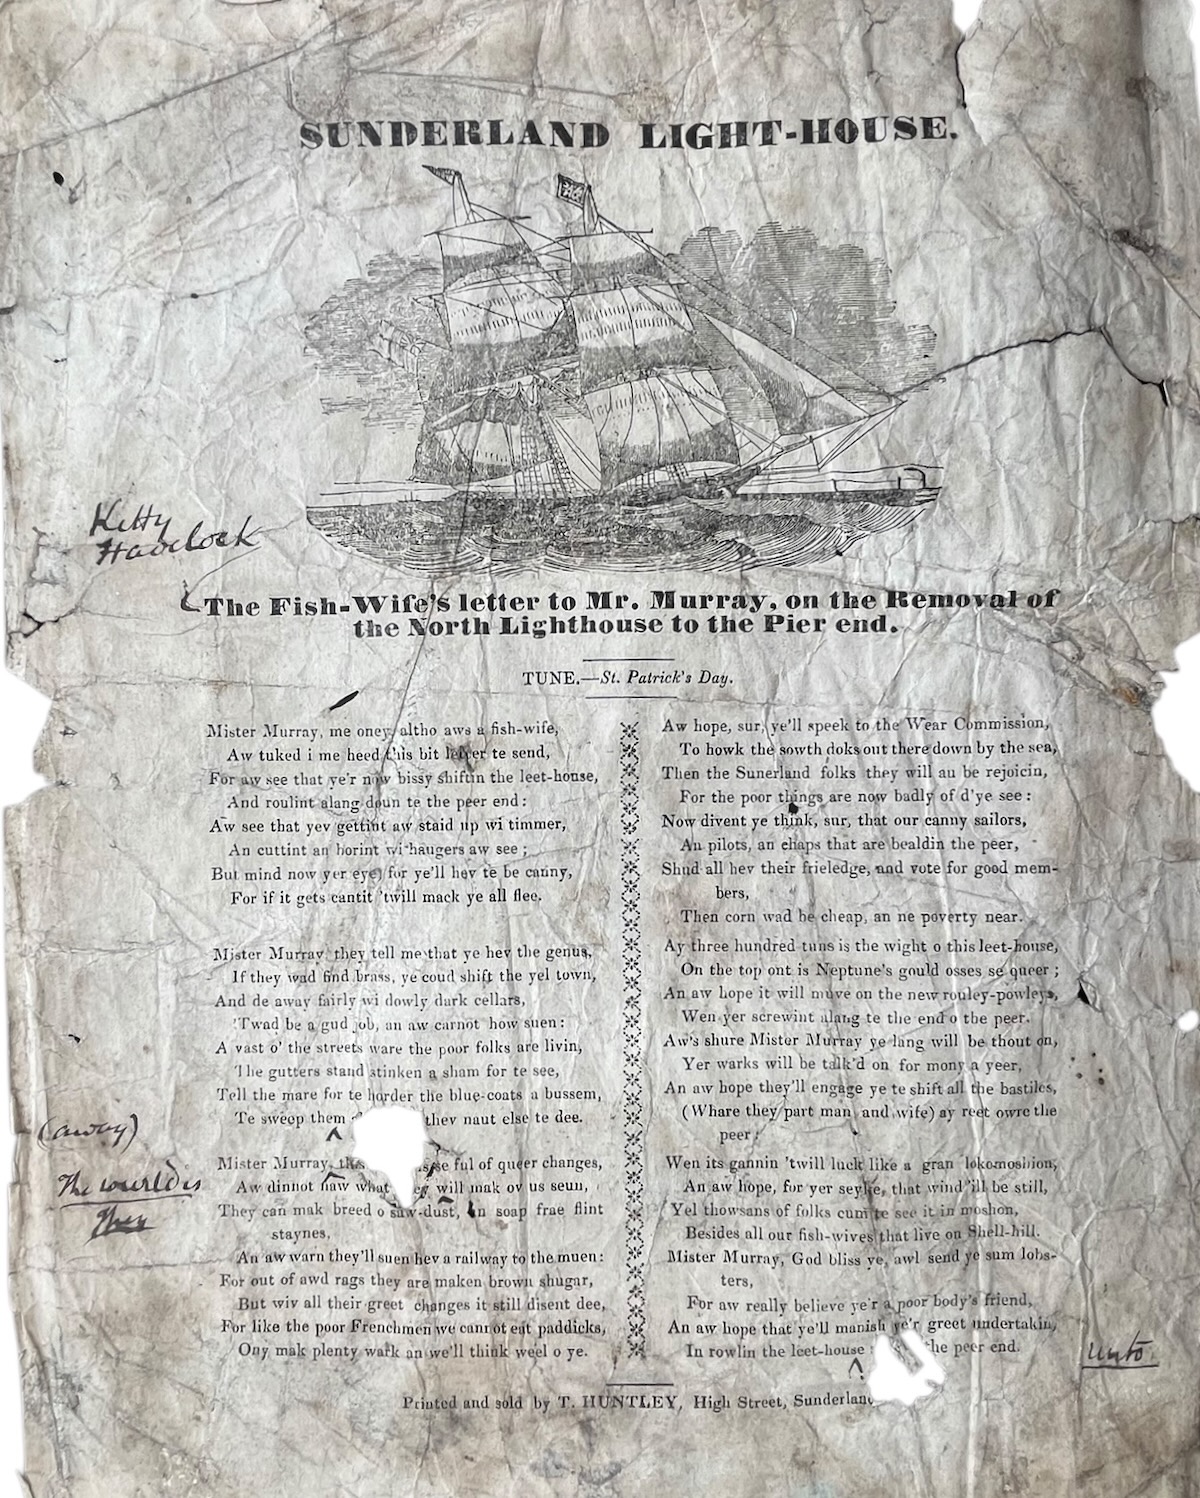 SUNDERLAND LIGHT-HOUSE.
Kitty
Havelock
The Fish-Wife's letter to Mr. Murray, on the Removal of
the North Lighthouse to the Pier end.
TUNE.—St. Patrick's Day.
Mister Murray, me oney, altho aws a fish-wife,
Aw tuked i me heed this bit letter te send,
For aw see that ye'r now bissy shiftin the leet-house,
And roulint alang doun te the peer end:
Aw see that yev gettint aw staid up wi timmer,
An cuttint an borint wi haugers aw see;
But mind now yer eye, for ye'll hev te be canny,
For if it gets cantit 'twill mack ye all flee.
Mister Murray, they tell me that ye hev the genus,
If they wad find brass, ye coud shift the yel town,
And de away fairly wi dowly dark cellars,
'Twad be a gud job, an aw carnot how suen:
A vast o' the streets ware the poor folks are livin,
The gutters stand stinken a sham for te see,
Tell the mare for te horder the blue-coats a bussem,
Te sweep them they naut else te dee.
(away)
Mister Murray, ful of queer changes,
The world is
Aw dinnot naw what will mak ov us seun,
They
They can mak breed o saw-dust, an soap frae flint
staynes,
An aw warn they'll suen hev a railway to the muen:
For out of awd rags they are maken brown shugar,
But wiv all their greet changes it still disent dee,
For like the poor Frenchmen we cannot eat paddicks,
Ony mak plenty wark an we'll think weel o ye.
Aw hope, sur, ye'll speek to the Wear Commission,
To howk the sowth doks out there down by the sea,
Then the Sunerland folks they will au be rejoicin,
For the poor things are now badly of d'ye see:
Now divent ye think, sur, that our canny sailors,
An pilots, an chaps that are bealdin the peer,
Shud all hev their frieledge, and vote for good mem-
bers,
Then corn wad be cheap, an ne poverty near.
Ay three hundred tuns is the wight o this leet-house,
On the top ont is Neptune's gould osses se queer;
An aw hope it will muve on the new rouley-powleys,
Wen yer screwint alang te the end o the peer.
Aw's shure Mister Murray ye lang will be thout on,
Yer warks will be talk'd on for mony a yeer,
An aw hope they'll engage ye te shift all the bastiles,
(Whare they part man and wife) ay reet owre the
peer:
Wen its gannin 'twill luck like a gran lokomoshion,
An aw hope, for yer seyke, that wind 'ill be still,
Yel thowsans of folks cum te see it in moshon,
Besides all our fish-wives that live on Shell-hill.
Mister Murray, God bliss ye, awl send ye sum lobs-
ters,
For aw really believe ye'r a poor body's friend,
An aw hope that ye'll manish ye'r greet undertakin,
In rowlin the leet-house the peer end.
unto
Printed and sold by T. HUNTLEY, High Street, Sunderland